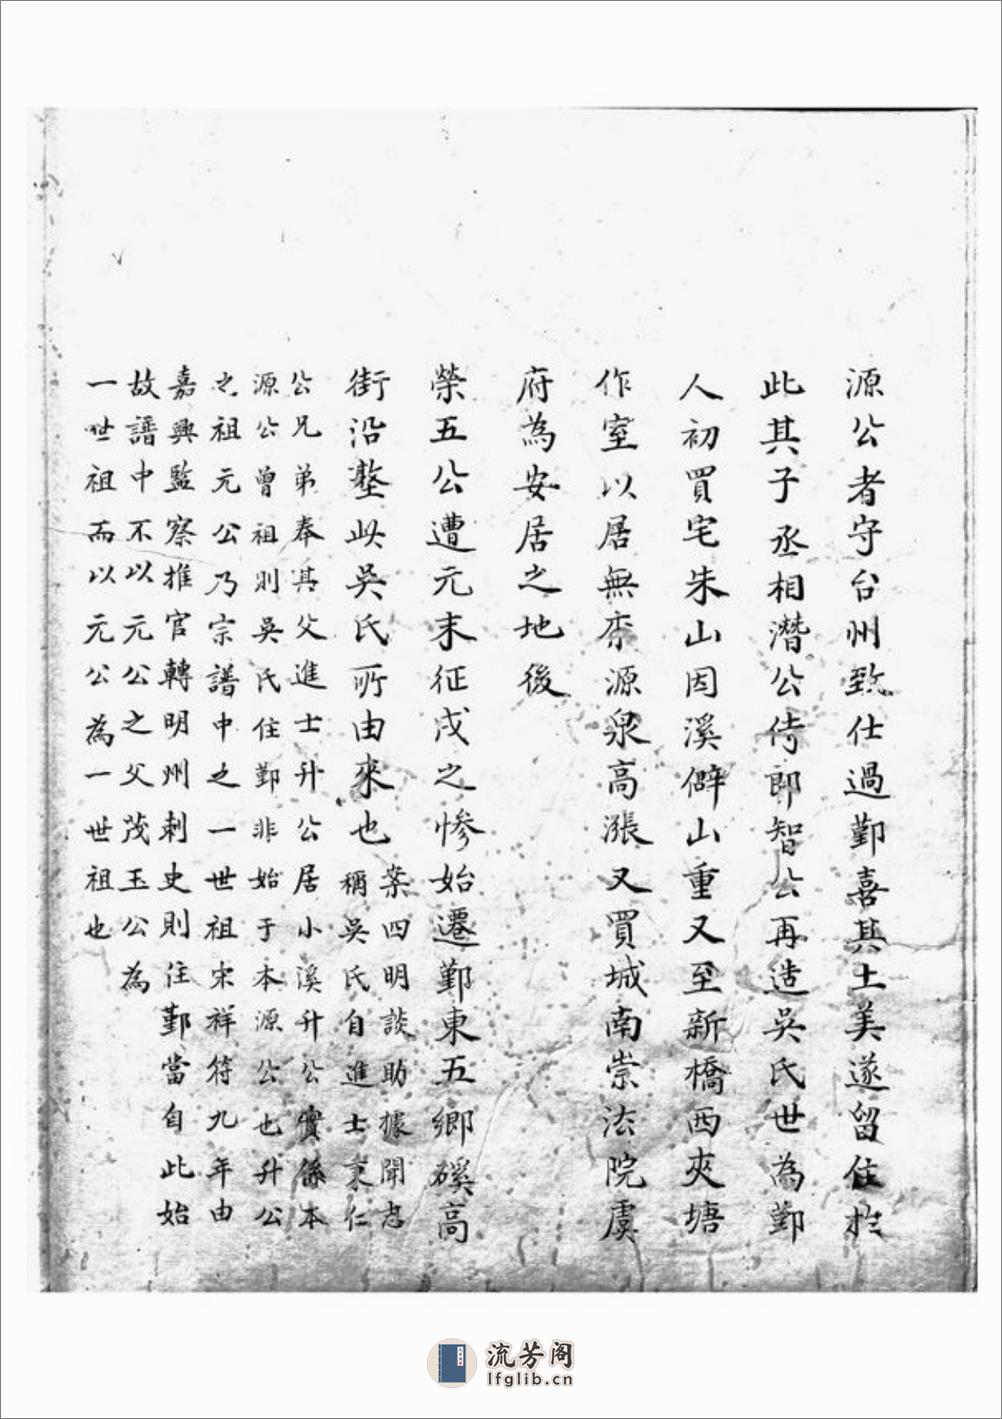 源公者守台州致仕過鄞喜其土美遂留住於
此其子丞相潛公侍郎智公再造吳氏世為鄞
人初買宅朱山因溪僻山重又至新橋西夾塘
作室以居無柰源泉高漲又買城南崇法院虞
府為安居之地後
榮五公遭元末征戍之慘始遷鄞東五鄉磎高
街沿墊此吳氏所由來也
案四明談助據聞志
稱吳氏自進士秉仁
公兄弟奉其父進士升公居小溪升公實係本
源公曾祖則吳氏住鄞非始于本源公也升公
之祖元公乃宗譜中之一世祖宋祥符九年由
嘉興監察推官轉明州刺史則住鄞當自此始
故譜中不以元公之父茂玉公為
一世祖而以元公為一世祖也
流芳阁
lfglib.cn